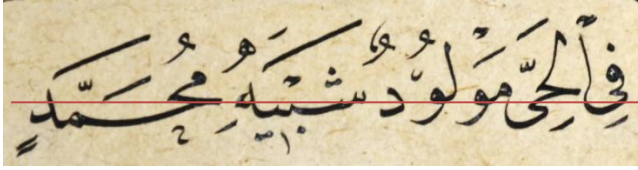 فِي ٱلْحَيِّ مَوْلُودٌ شَبِيهُ مُحَمَّدٍ